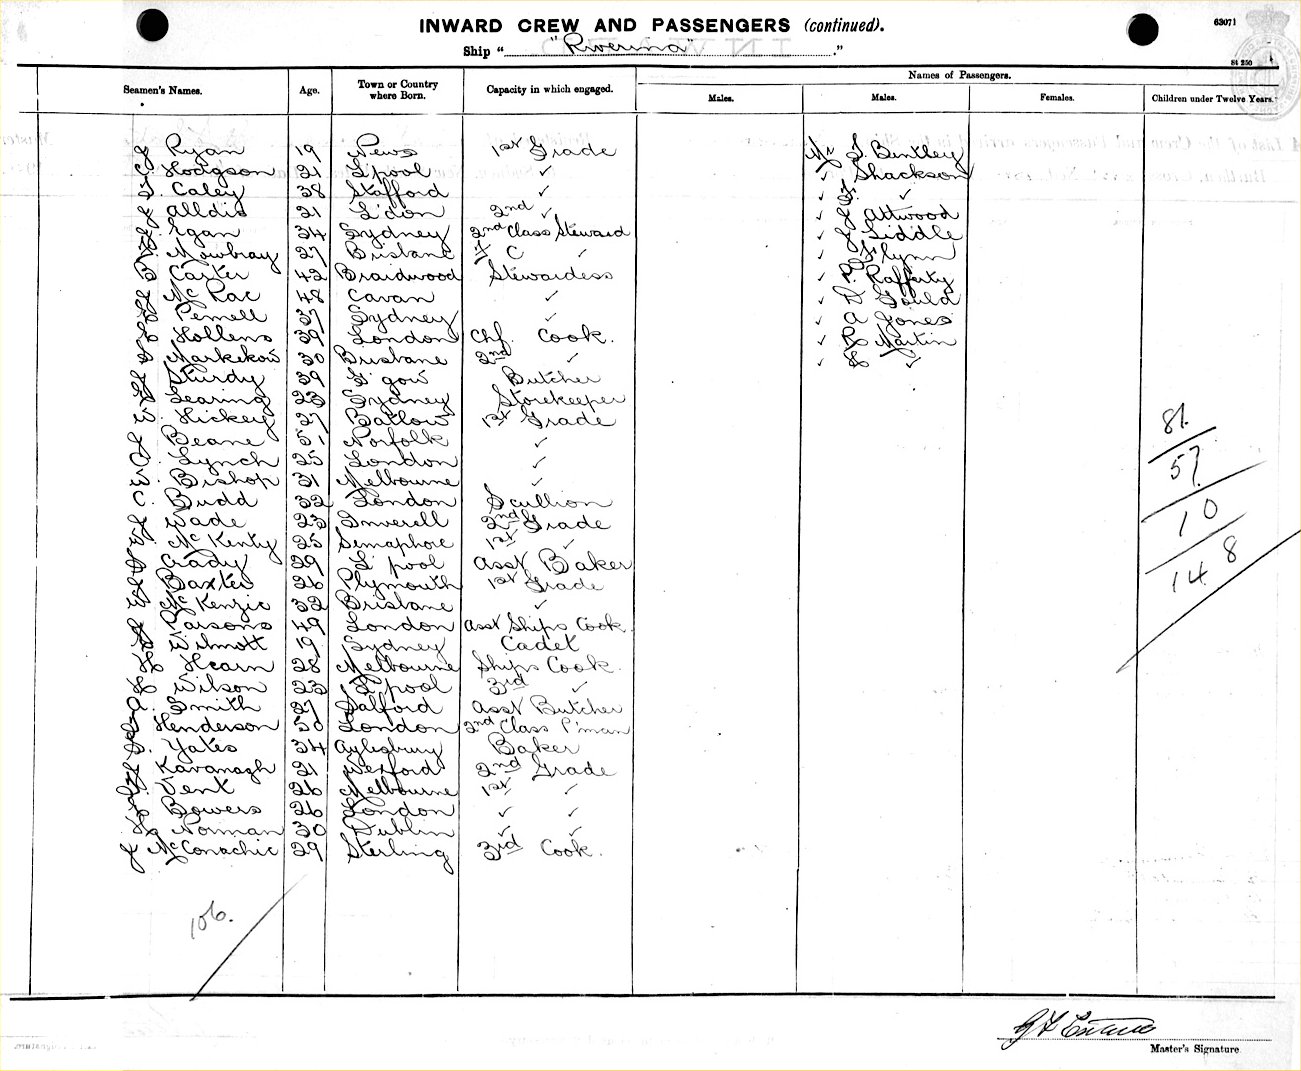 INWARD CREW AND PASSENGERS (continued).
63071
Ship "Riverina"
St 250
Seamen's Names. Age. Town or Country where Born. Capacity in which engaged. Names of Passengers.
Males. Males. Females. Children under Twelve Years.
J Ryan 19 News 1st Grade
C. Hodgson 21 L'pool ✓
Caley 38 Stafford ✓
Alldis 21 L'don 2nd ✓
Egan 34 Sydney 2nd Class Steward
Mowbray 27 Brisbane C ✓
Carter 42 Braidwood Stewardess
McRae 48 Cavan ✓
Pennell 37 Sydney ✓
Hollens 39 London Chf. Cook.
Markekow 30 Brisbane 2nd ✓
Sturdy 39 G'gow Butcher
Learing 23 Sydney Storekeeper
Hickey 27 Batlow 1st Grade
Beane 51 Norfolk ✓
Lynch 25 London ✓
Bishop 31 Melbourne ✓
C. Budd 32 London Scullion
Wade 23 Inverell 2nd Grade
McKenty 25 Semaphore 1st ✓
Grady 29 L'pool Asst Baker
Baxter 26 Plymouth 1st Grade
McKenzie 32 Brisbane ✓
Parsons 49 London Asst Ships Cook
Wilmott 19 Sydney Cadet
H Hearn 28 Melbourne Ships Cook.
Wilson 23 L'pool 3rd ✓
A. Smith 27 Salford Asst Butcher
Henderson 50 London 2nd Class P'man
Yates 34 Aylesbury Baker
Kavanagh 21 Wexford 2nd Grade
Vent 26 Melbourne 1st ✓
Bowers 26 London ✓ ✓
Norman 30 Dublin ✓ ✓
J McConachie 29 Sterling 3rd Cook.
Mr S. Bentley
✓ Shackson
✓ ✓
✓ Attwood
✓ Liddle
✓ Flynn
✓ Rafferty
✓ Gould
✓ A Jones
✓ R Martin
✓ ✓
81.
57.
10
148
106.
Master's Signature